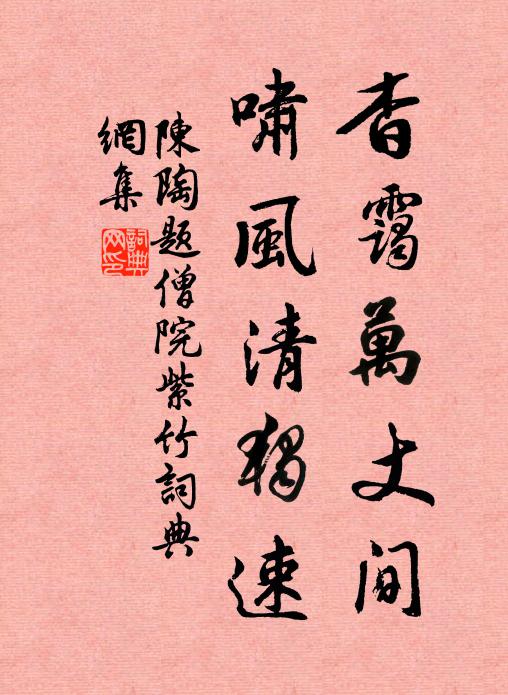 杳靄萬丈間
嘯風清獨速
陳陶題僧院紫竹詞典
網集
詞典
网印